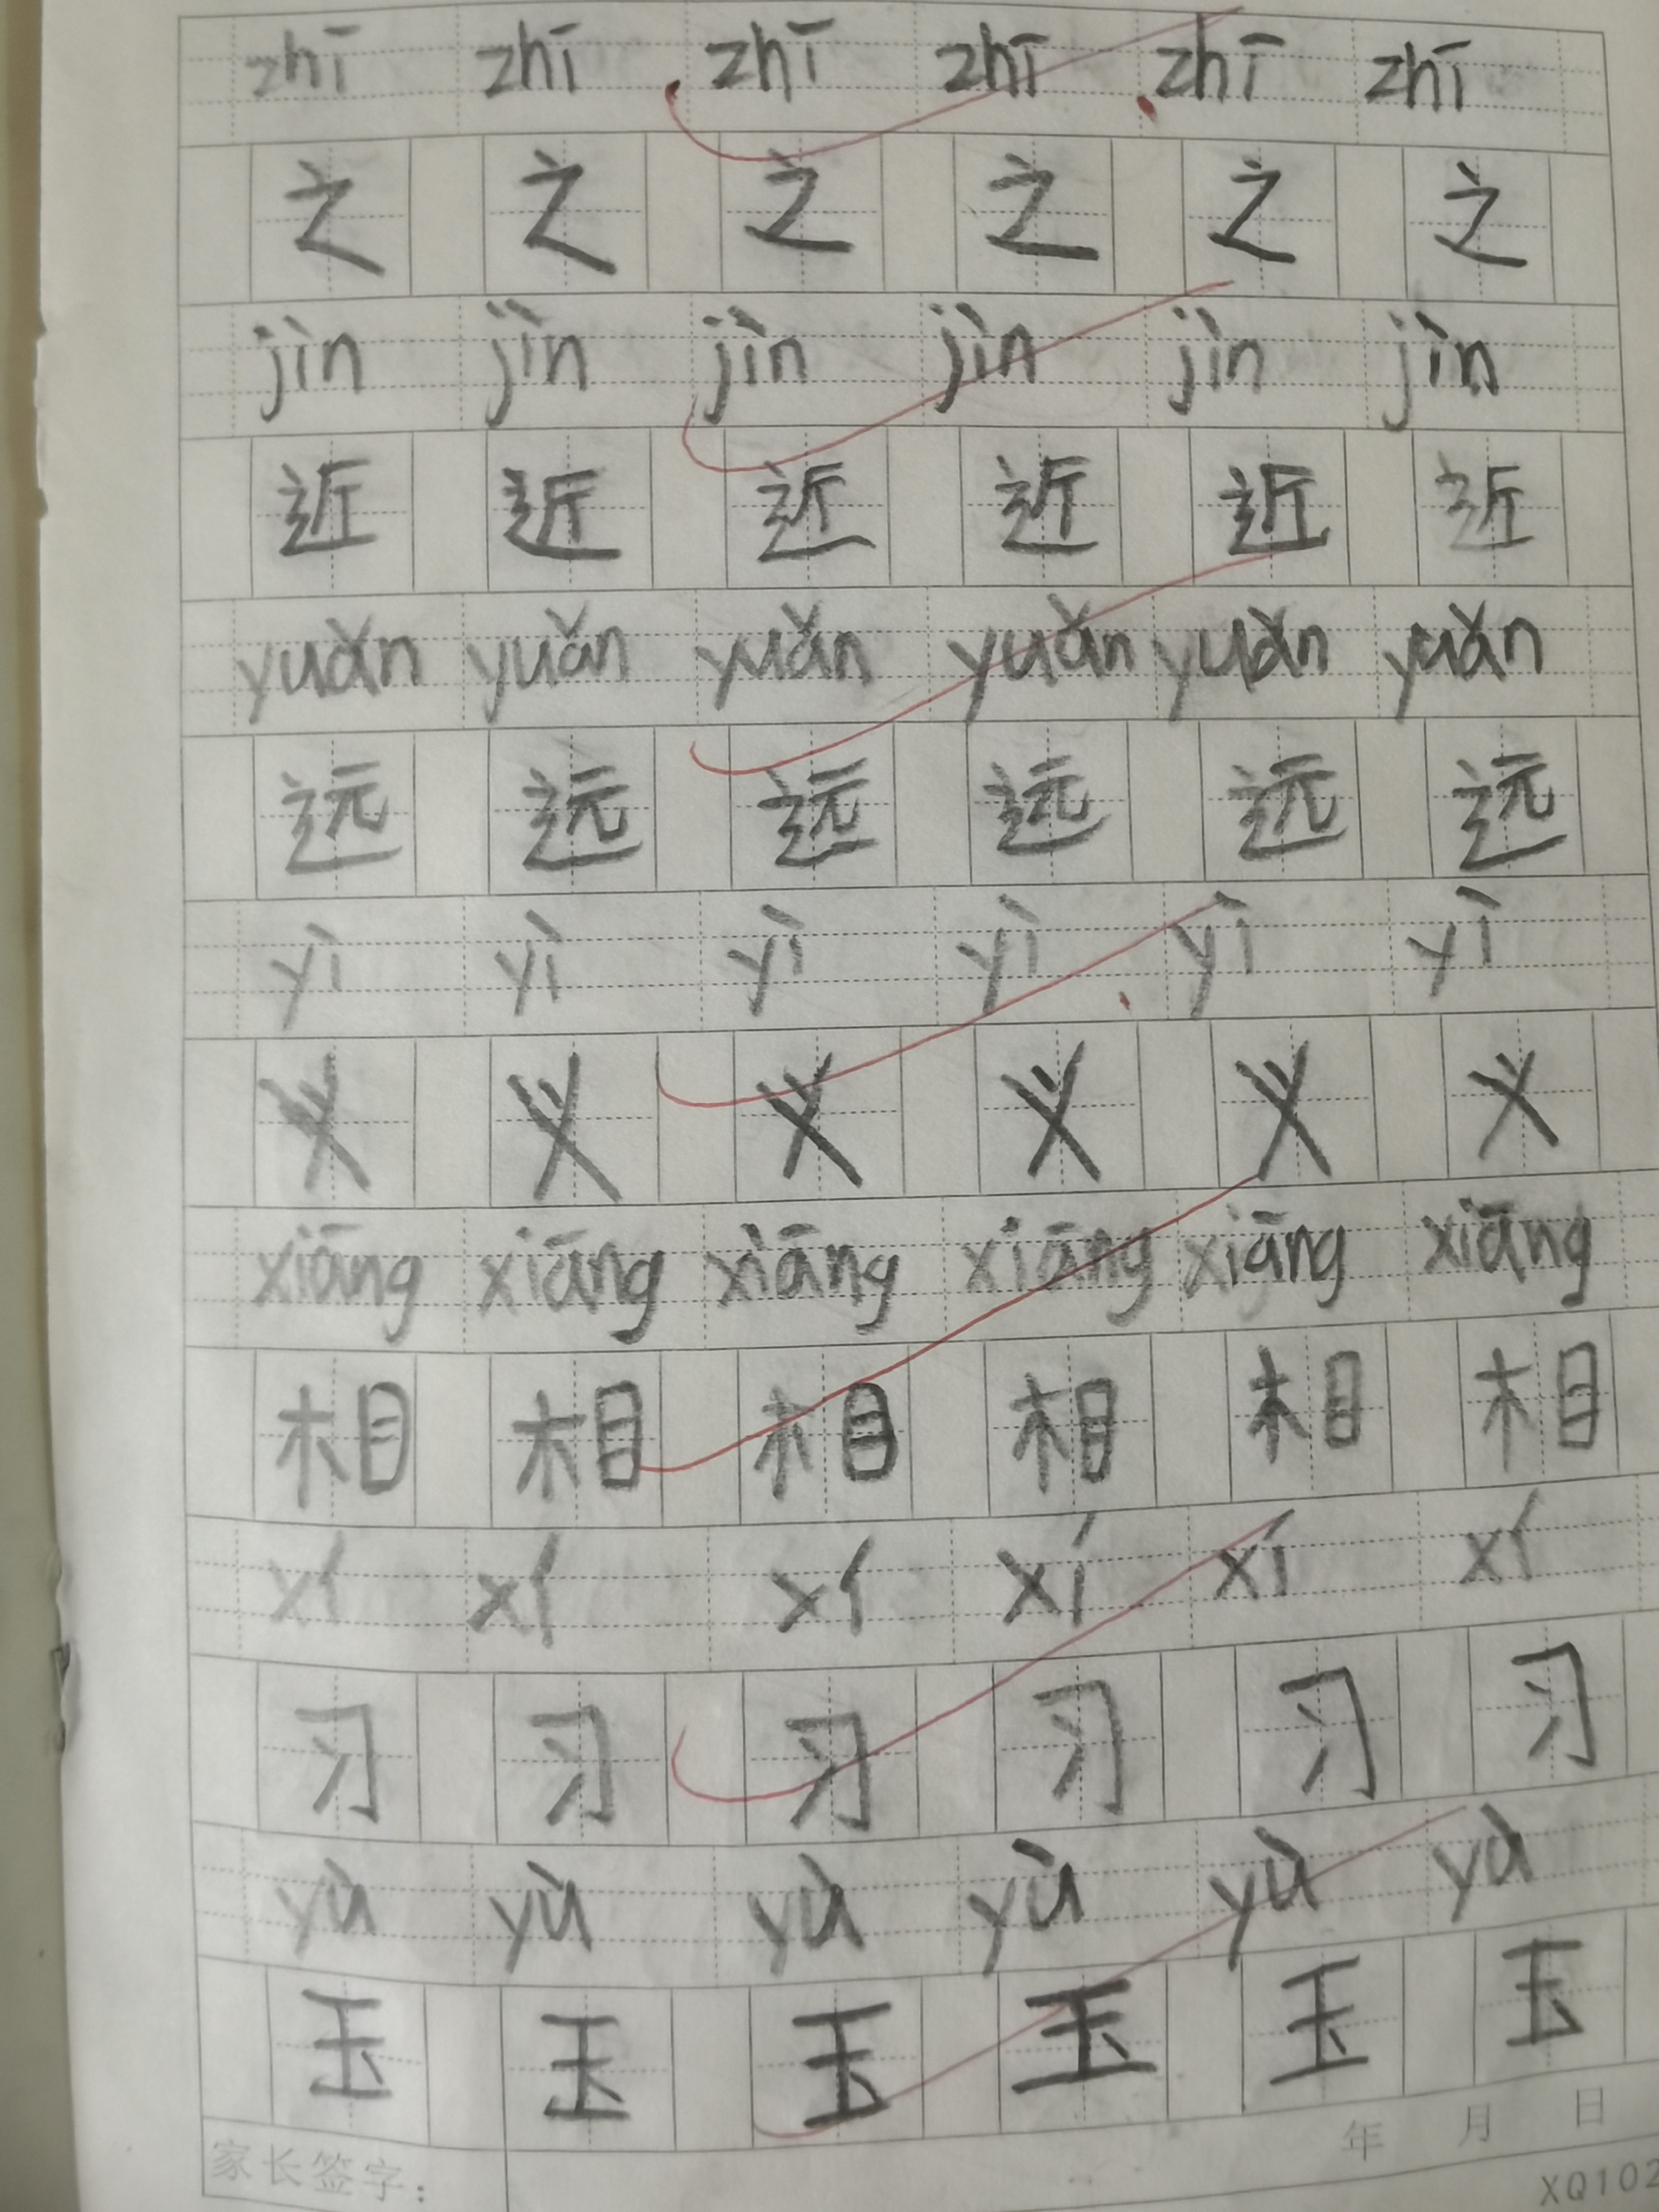 zhī zhī zhī zhī zhī zhī
之 之 之 之 之 之
jìn jìn jìn jìn jìn jìn
近 近 近 近 近 近
yuǎn yuǎn yuǎn yuǎn yuǎn yuǎn
远 远 远 远 远 远
yì yì yì yì yì yì
义 义 义 义 义 义
xiāng xiāng xiāng xiāng xiāng xiāng
相 相 相 相 相 相
xí xí xí xí xí xí
习 习 习 习 习 习
yù yù yù yù yù yù
玉 玉 玉 玉 玉 玉
家长签字： 年 月 日
XQ102